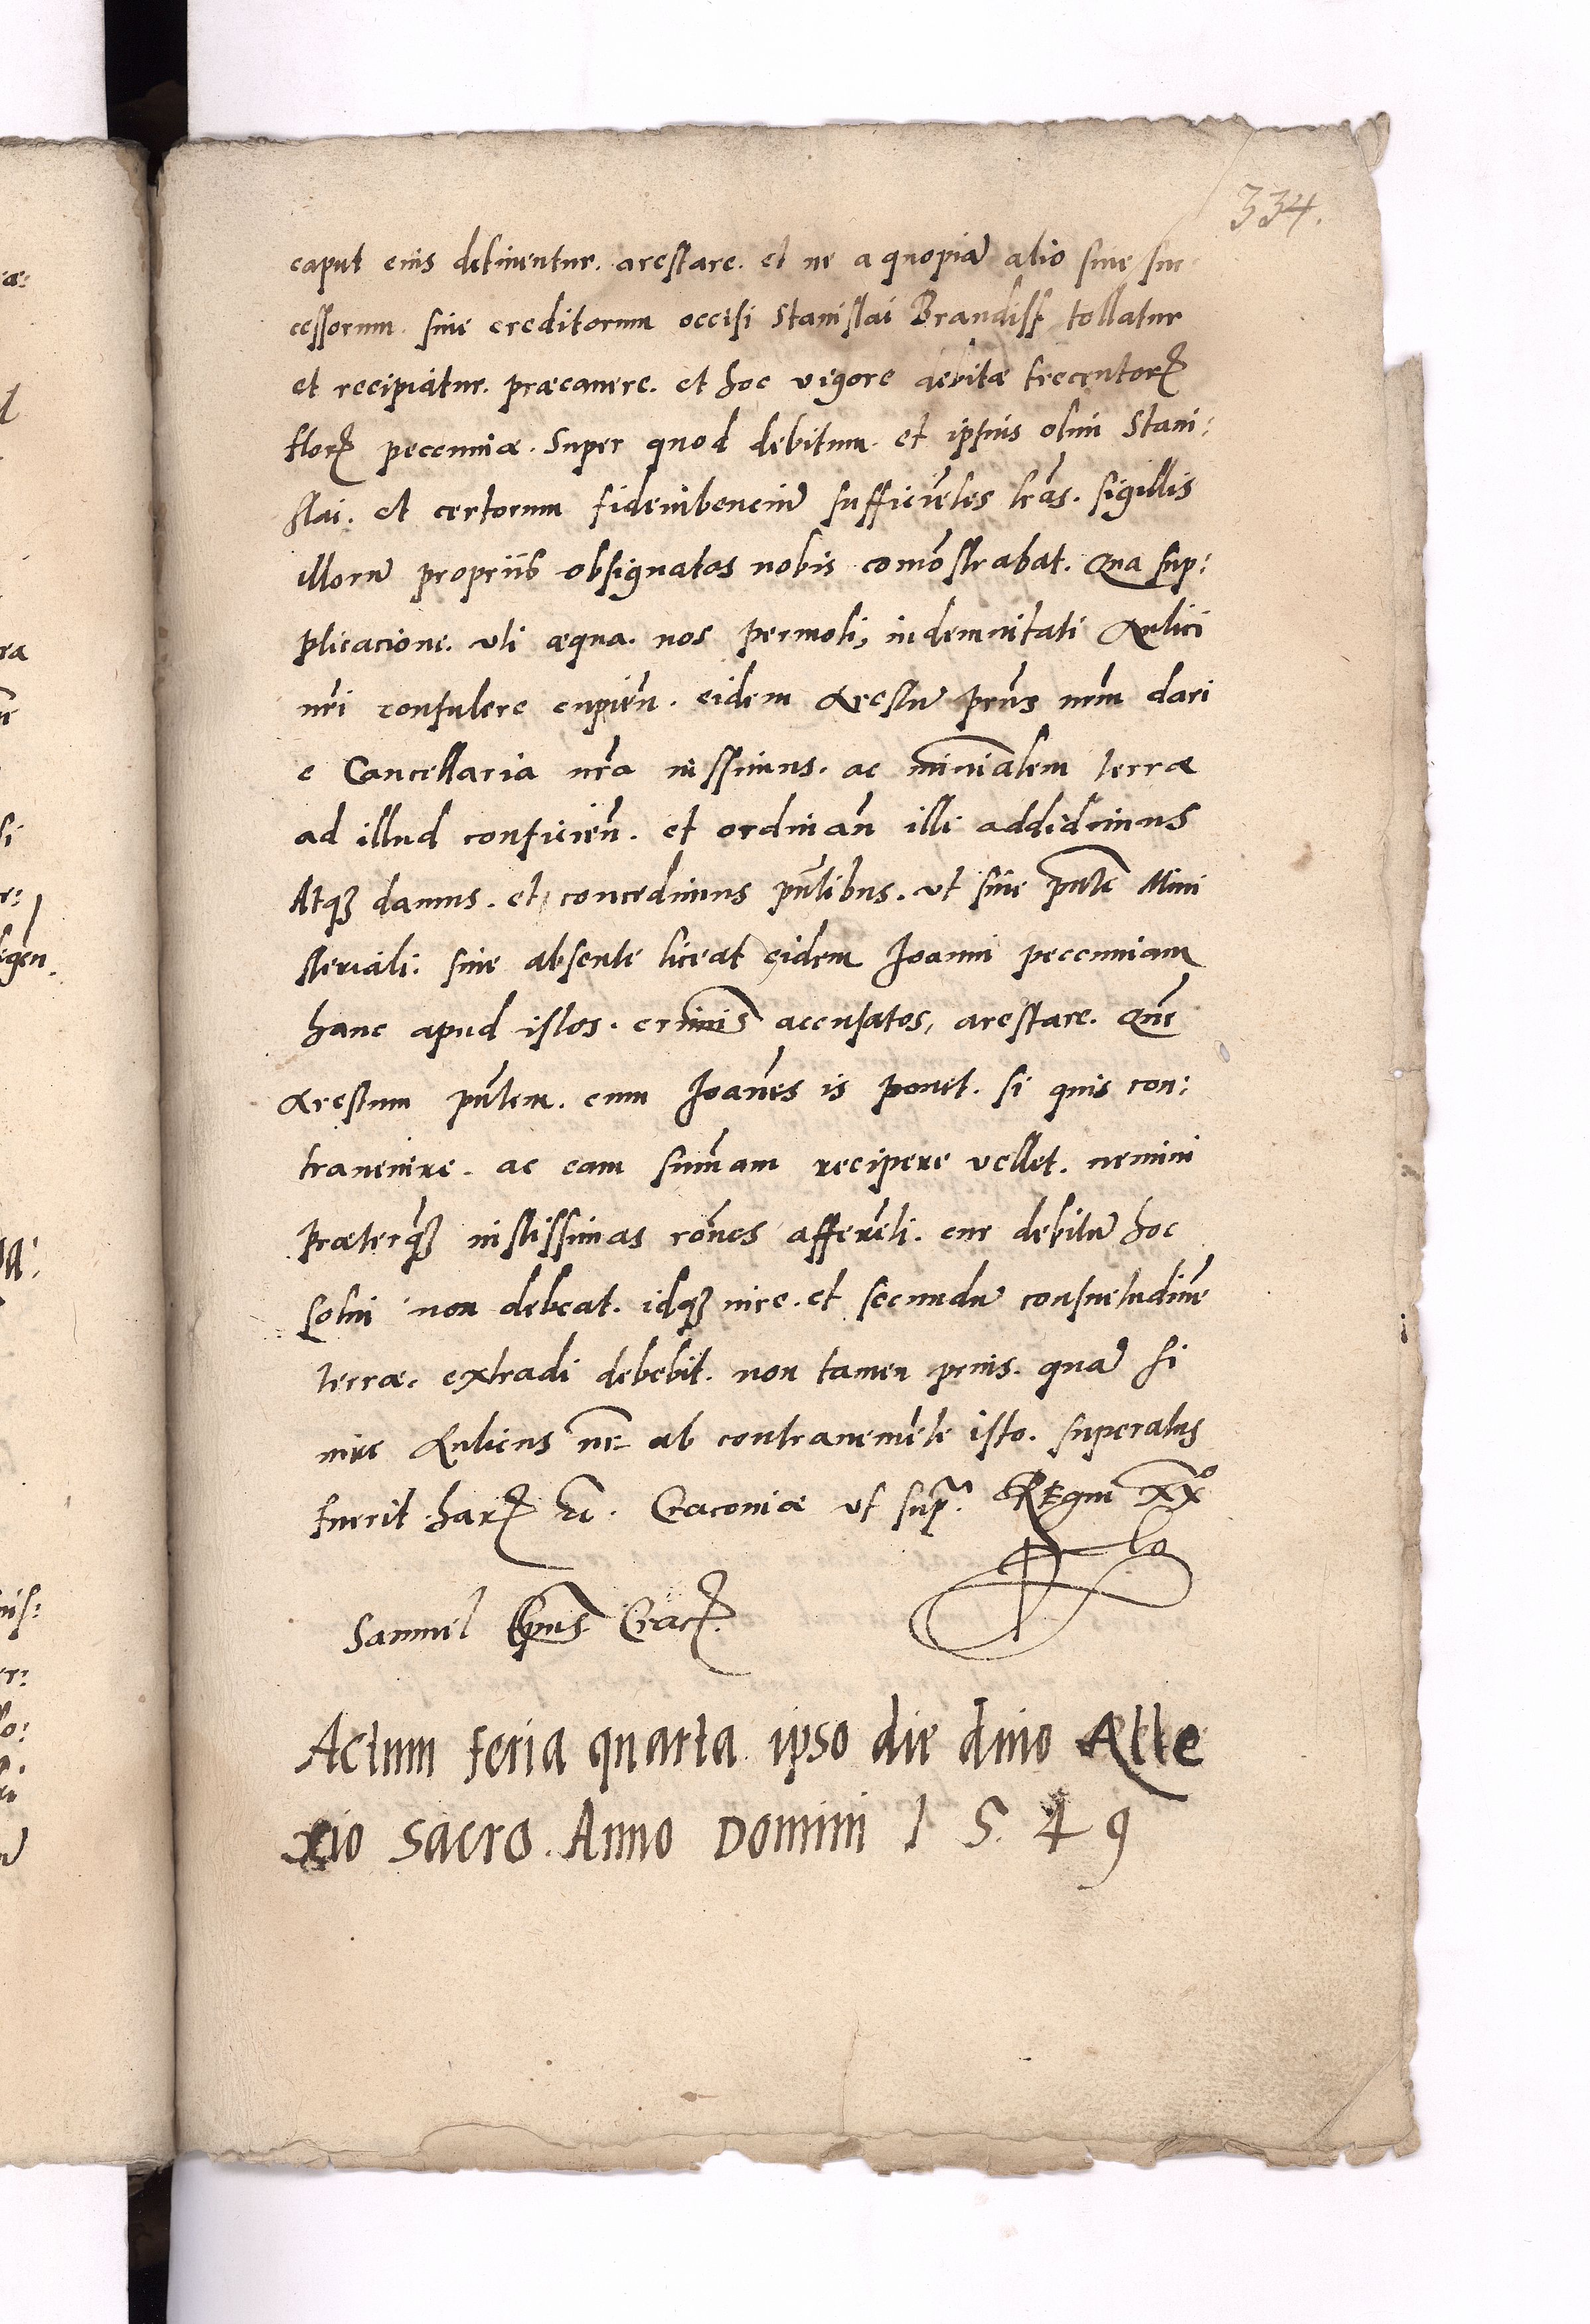 334.
caput eius detinentur. arestare. et ne a quopiā alio siue suc
cessorum. siue creditorum occisi Stanislai Brandiss tollatur
et recipiatur. præcauere. et hoc vigore debitæ trecentorꝝ
florꝝ pecuniæ. Super quod debitum. et ipsius olim Stani:
slai. et certorum fideiubenciū sufficiẽtes lr̃as. sigillis
illorū propriis obsignatas nobis comõstrabat. Qua sup:
plicacione. vti æqua. nos permoti, indemnitati Aulici
nr̃i consulere cupieñ. eidem Arestū pr̃ns nr̃m dari
e Cancellaria nr̃a iussimus. ac miniãlem terræ
ad illud conficieñ. et ordinañ illi addidimus
Atqȝ damus. et concedimus pñtibus. vt siue pñte Mini
steriali. siue absente liceat eidem Joanni pecuniam
hanc apud istos. criminis accusatos, arestare. Que᷈
Arestum pñtem. cum Joañes is ponet. si quis con:
trauenire. ac eam sum̃am recipere vellet. nemini
præterq̃ȝ iustissimas rões afferẽti. cur debitū hoc
solui non debeat. idqȝ iure. et secundū consuetudinẽ
terræ. extradi debebit. non tamen prius. quā si
iure Aulicus nr̃ ab contraueniẽte isto. superatus
fuerit. harꝝ &c̃. Cracouiæ vt supᵃ. Regni xxᵒ
Samuel Epus Cracꝝ.
Actum feria quarta ipso die diuo Alle
xio sacro. Anno Domini 1 5 4 9